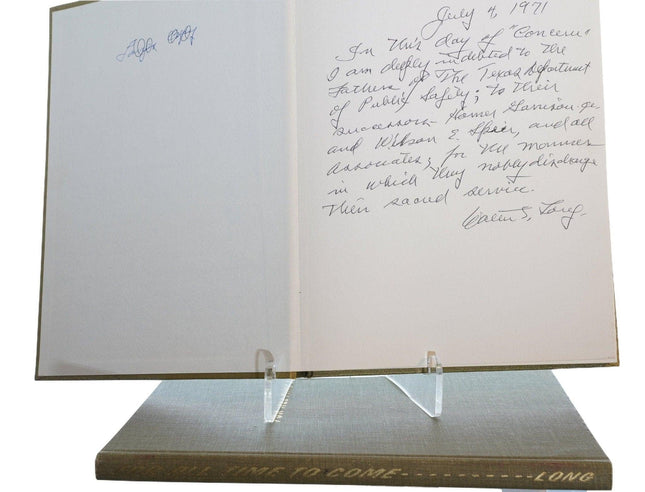 July 8, 1971
In this day of "Concern"
I am deeply indebted to the
Fathers of The Texas Department
of Public Safety; to their
successors Homer Garrison Jr
and Wilson E. Speir, and all
associates, for the manner
in which they nobly discharge
their sacred service.
Long.
ALL TIME TO COME - - - - - - - - - - - LONG